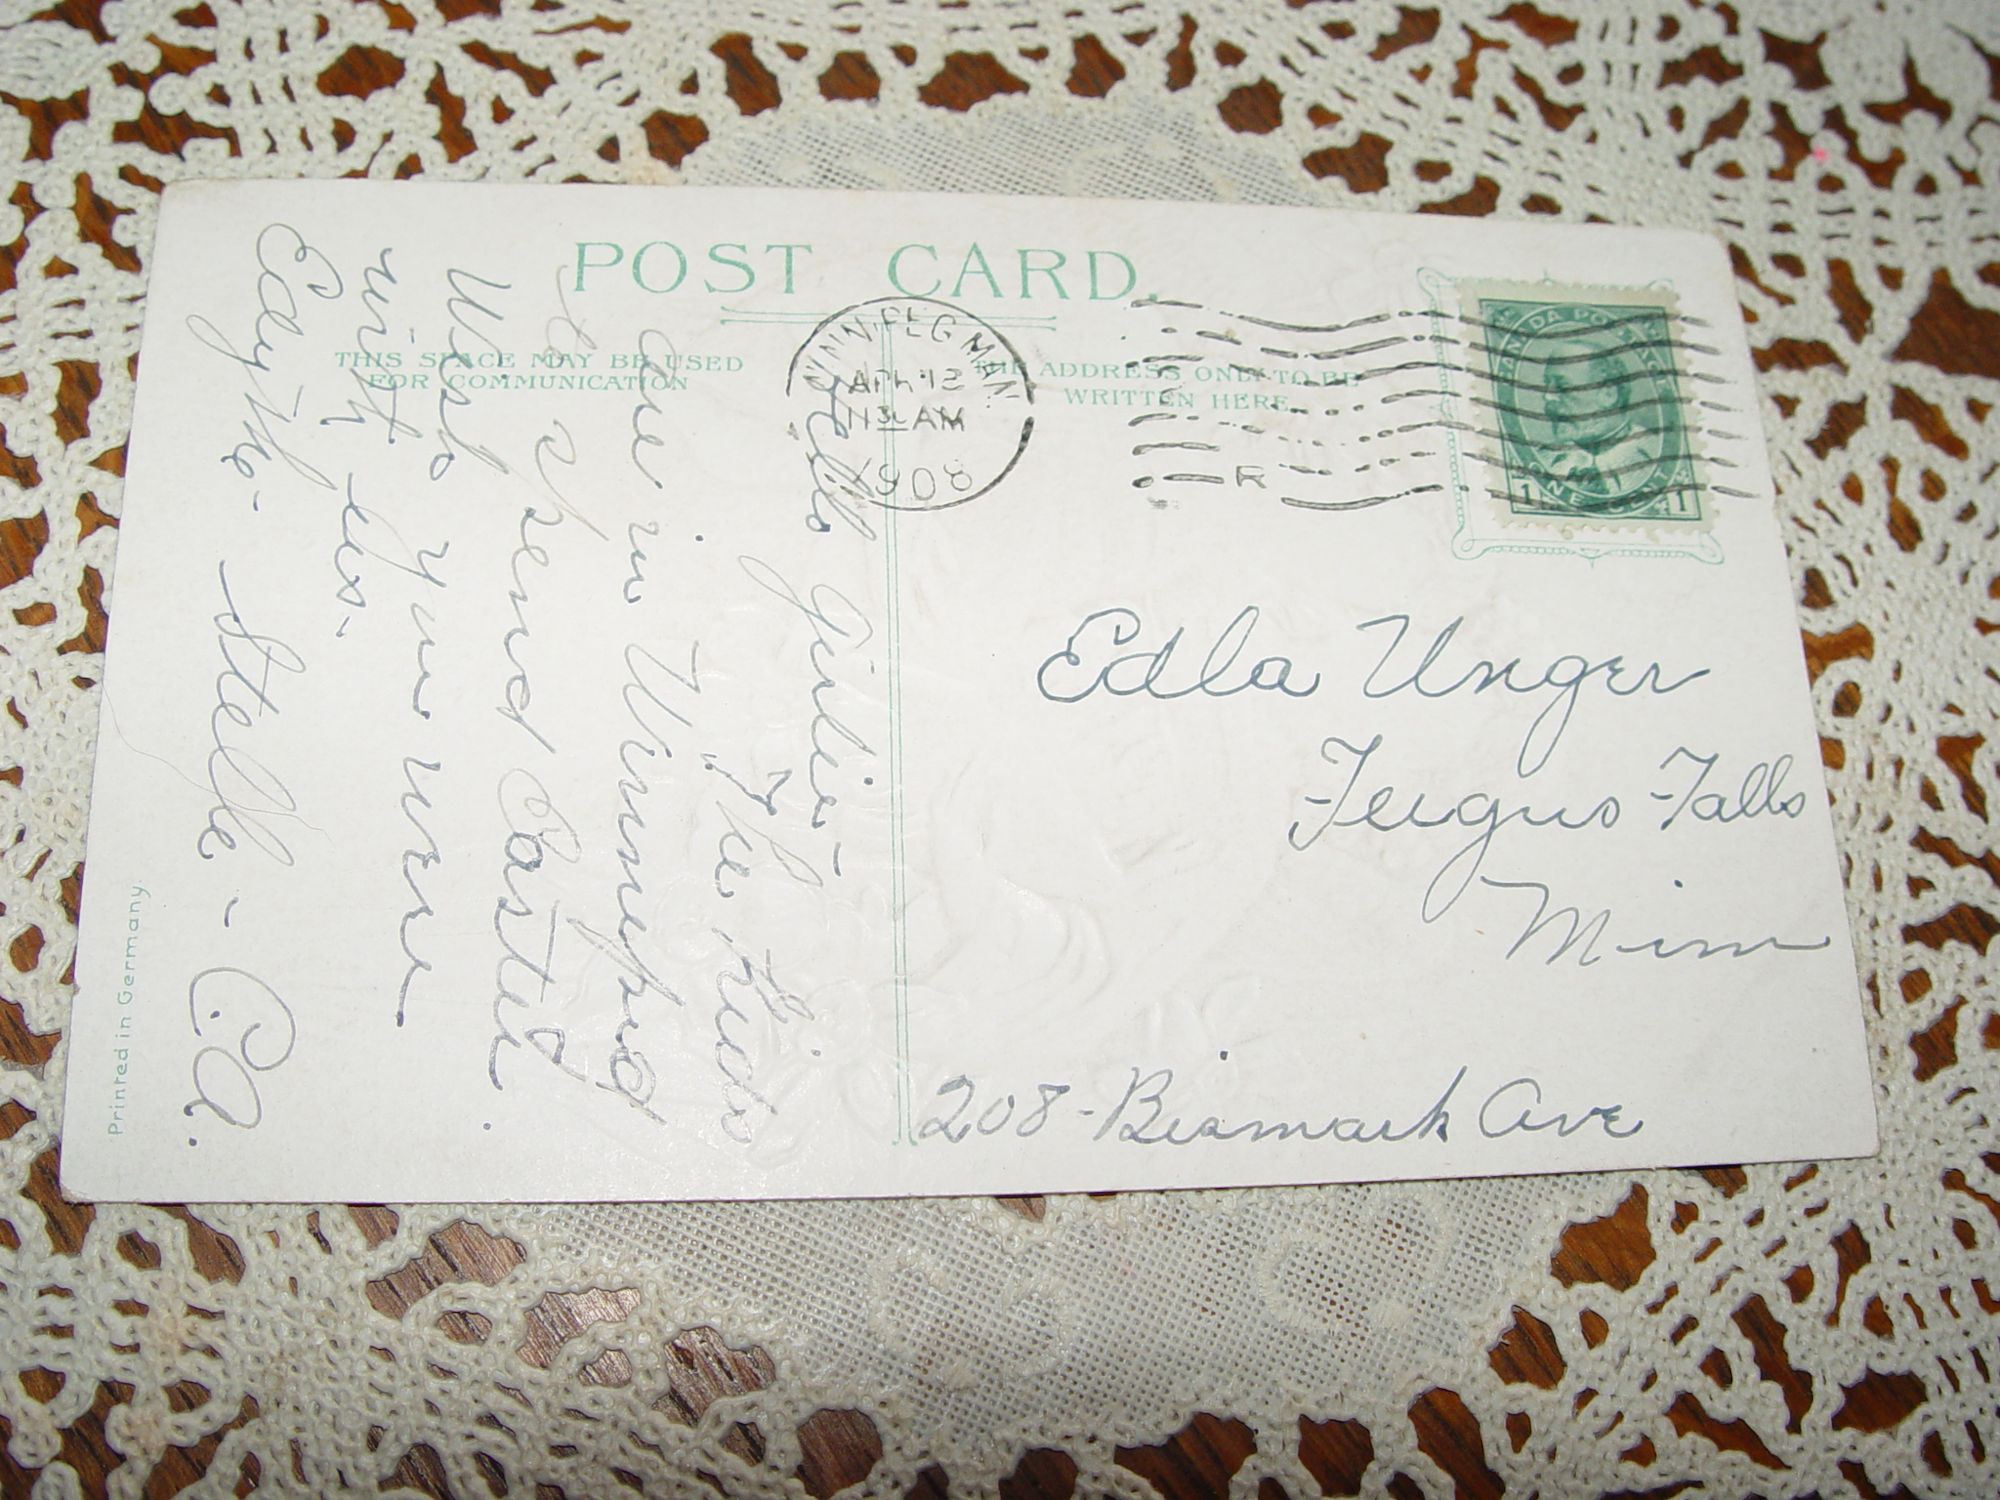 POST CARD.
THIS SPACE MAY BE USED
FOR COMMUNICATION
THE ADDRESS ONLY TO BE
WRITTEN HERE
WINNIPEG MAN.
APR 12
11 30 AM
1908
R
CANADA POSTAGE
1 ONE CENT 1
Edla Unger
Fergus Falls
Minn
208 - Bismark Ave
Hello Girlie -
"The Kids"
are in Winnipeg
to spend Easter.
Wish you were
with us.
Edythe - Stelle - C.A.
Printed in Germany.